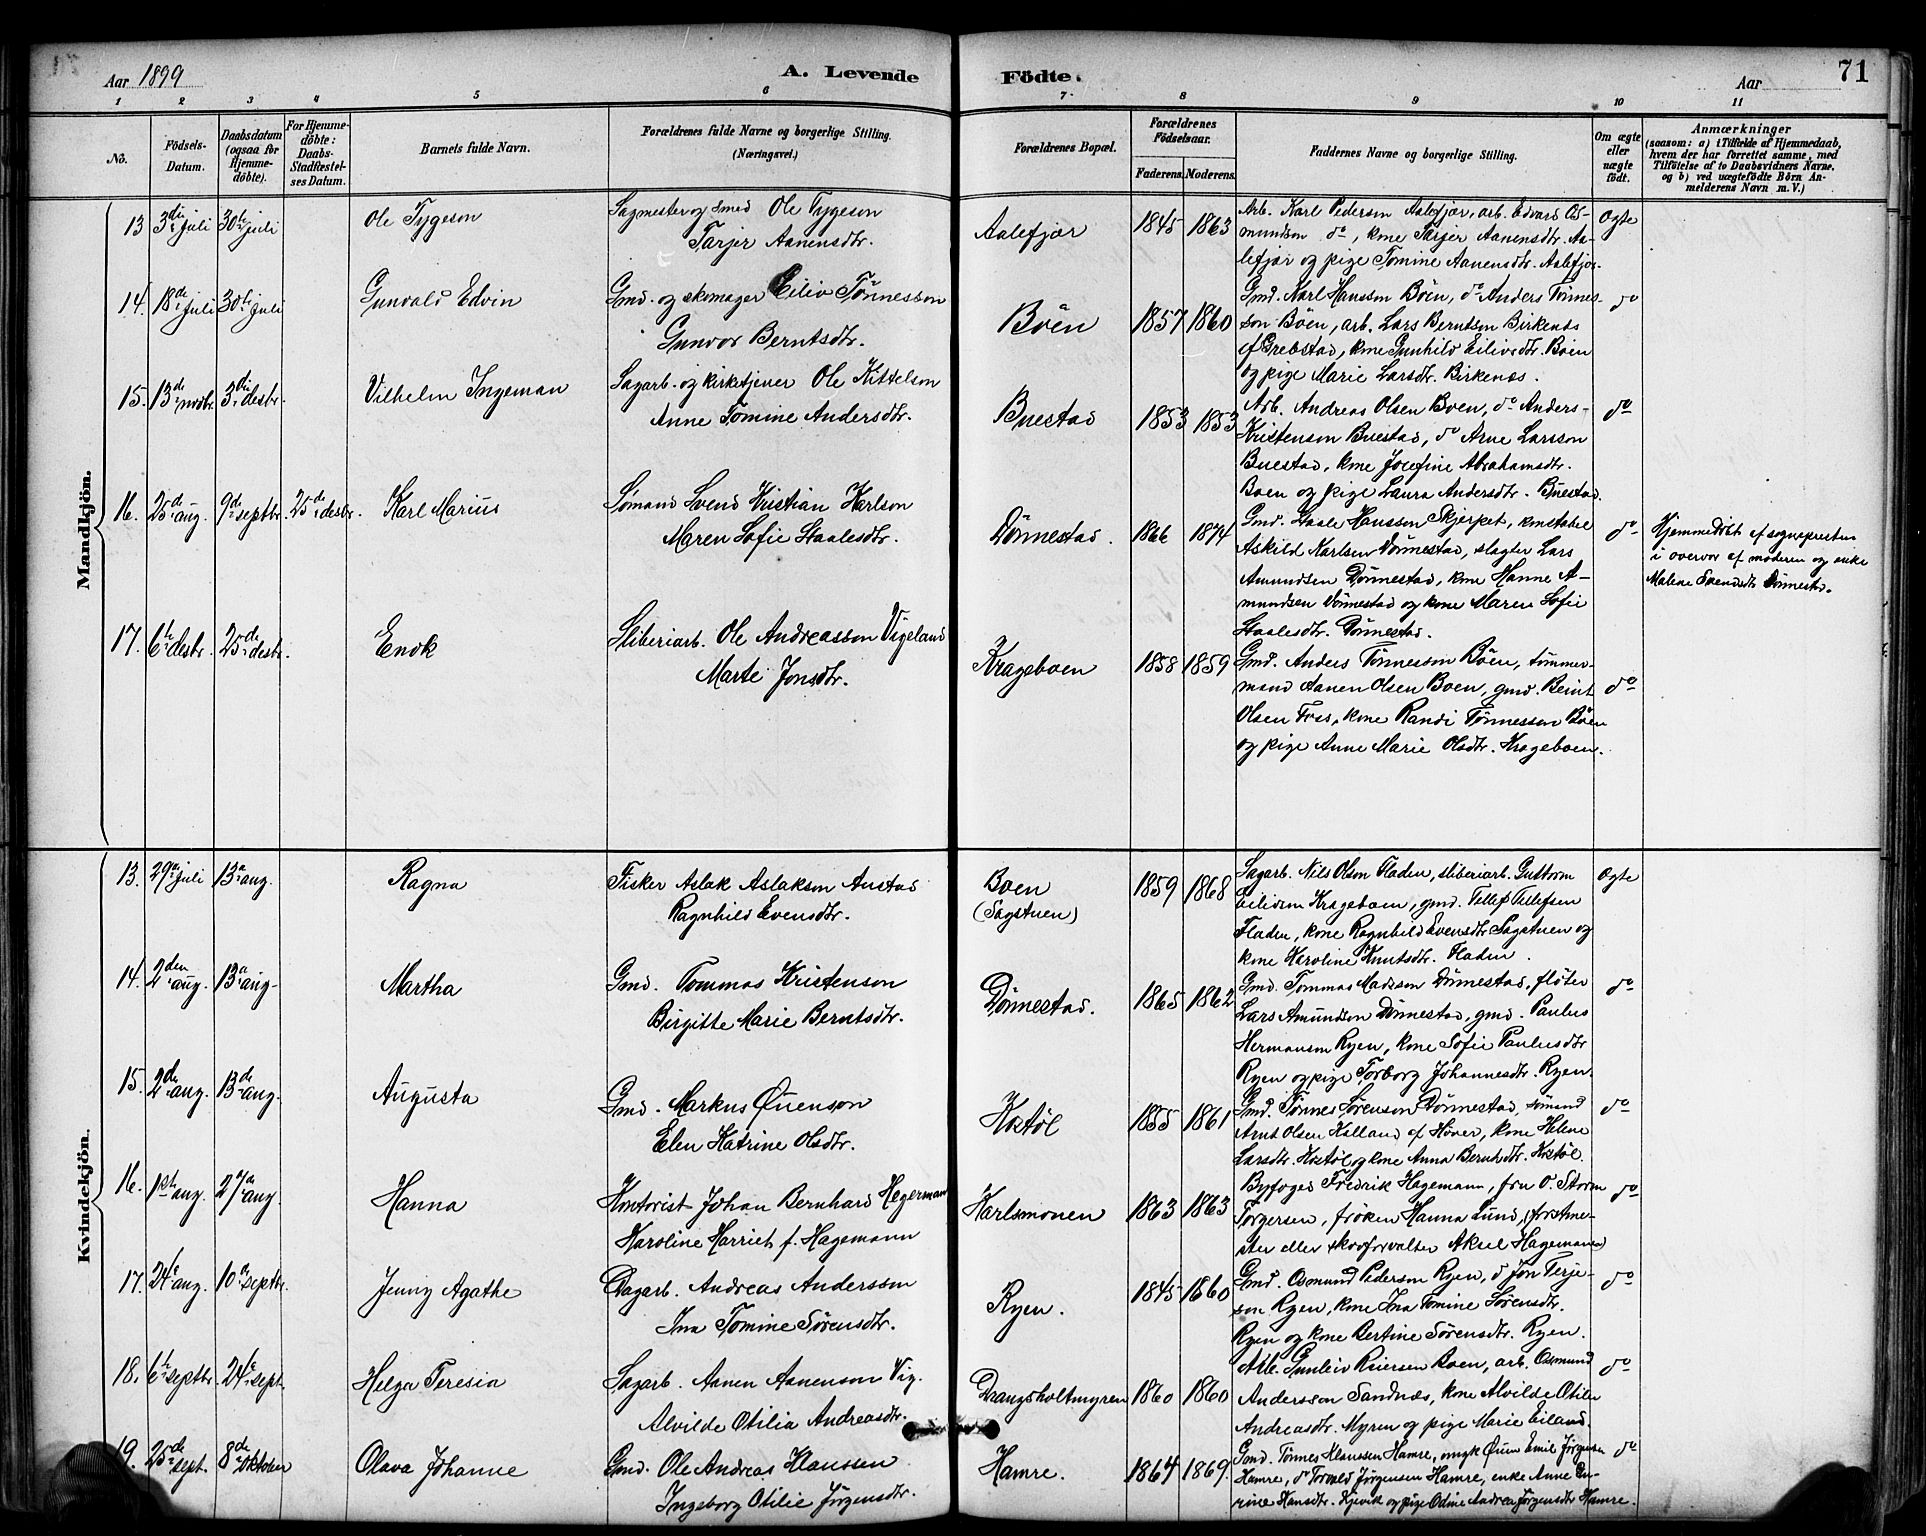 Aar 1899
A. Levende Födte.
Aar
71
1 2 3 4 5 6 7 8 9 10 11
No.
Födsels-Datum.
Daabsdatum (ogsaa for Hjemmedöbte).
For Hjemmedöbte: Daabs-Stadfæstelses Datum.
Barnets fulde Navn.
Forældrenes fulde Navne og borgerlige Stilling. (Næringsvei.)
Forældrenes Bopæl.
Forældrenes Födselsaar.
Faderens. Moderens.
Faddernes Navne og borgerlige Stilling.
Om ægte eller uægte födt.
Anmærkninger
(saasom: a) i Tilfælde af Hjemmedaab, hvem der har forrettet samme, med Tilföielse af to Daabsvidners Navne, og b) ved uægtefödte Börn Anmelderens Navn m. V.)
Mandkjön.
13 3die juli 30te juli Ole Tygeson
Sagmester og smed Ole Tygeson
Tarjer Aanensdtr.
Aalefjær 1845 1863
Arb. Karl Pedersen Aalefjær, arb. Edvard Os-
mundsen do, kone Tarjer Aanensdtr. Aa-
lefjær og pige Tomine Aanensdtr. Aalefjær.
Ægte
14. 18de juli 30te juli Gunvald Edvin
Gmd. og skomager Eiliv Tönnesson
Gunvor Berntsdtr.
Böen 1857 1860
Gmd. Karl Hansson Böen, do Anders Tönnes-
son Böen, arb. Lars Berntsen Birkenes
af Grebstad, kone Gunhild Eilivsdtr. Böen
og pige Marie Larsdtr. Birkenæs.
do
15. 13de novbr. 3die desbr. Vilhelm Ingeman
Sagarb. og kirketjener Ole Kittelson
Anne Tomine Andersdtr.
Buestad 1853 1853
Arb. Andreas Olsen Boen, do Anders
Kristenson Buestad, do Arne Larsson
Buestad, kone Josefine Abrahamsdtr.
Boen og pige Laura Andersdtr. Buestad.
do
16. 25de aug. 9de septbr. 25de desbr. Karl Marius
Sømand Svend Kristian Karlson
Maren Sofie Staalesdtr.
Dönnestad. 1866 1874
Gmd. Staale Hansson Skjerpet, konstabel
Askild Karlsen Dönnestad, slagter Lars
Amundsen Dönnestad, kone Hanne A-
mundsen Dönnestad og kone Maren Sofie
Staalesdtr. Dönnestad.
do
Hjemmedöbt af sogneprësten
i overvær af moderen og enke
Malene Svendsdtr Dönnestad.
17. 6te desbr. 25de desbr. Enok
Sliberiarb. Ole Andreasson Vigeland
Marte Jonsdtr.
Krageboen 1858 1859
Gmd. Anders Tönnesson Böen, tömmer-
mand Aanen Olsen Boen, gmd. Bernt
Olsen Foss, kone Randi Tönnesson Böen
og pige Anne Marie Olsdtr. Krageboen.
do
Kvindekjön.
13. 29de juli 13de aug. Ragna
Fisker Aslak Aslaksen Austad
Ragnhild Evensdtr.
Boen
(Sagstuen)
1859 1868
Sagarb. Nils Olson Fladen, sliberiarb. Guttorm
Eilivsen Krageboen, gmd. Tellef Tellefsen
Fladen, kone Ragnhild Evensdtr Sagstuen og
kone Karoline Knutsdtr. Fladen.
Ægte
14. 2den aug. 13de aug. Martha
Gmd. Tommas Kristenson
Birgitte Marie Berntsdtr.
Dönnestad. 1865 1862
Gmd. Tommas Madsson Dönnestad, fløter
Lars Amundsen Dönnestad, gmd. Paulus
Hermanson Ryen, kone Sofie Paulusdtr
Ryen og pige Torborg Johannesdtr. Ryen.
do
15. 2de aug. 13de aug. Augusta
Gmd. Markus Øuenson
Elen Katrine Olsdtr.
Kostöl 1855 1861
Gmd. Tönnes Sørenson Dönnestad, sømand
Arnt Olsen Kalland af Høver, kone Helene
Larsdtr. Kostöl og kone Anna Berntsdtr. Kostöl.
do
16. 1ste aug. 27de aug. Hanna
Kontorist Johan Bernhard Hegermann
Karoline Harriet f. Hagemann
Karlsmonen 1863 1863
Byfoged Fredrik Hagemann, fru O. Storm
Torgersen, frøken Hanna Lund, (forstme-
ster eller skovforvalter Aksel Hagemann)
do
17. 24de aug. 10de septbr. Jenny Agathe
Dagarb. Andreas Andersson
Ina Tomine Sörensdtr.
Ryen. 1845 1860
Gmd. Osmund Pederson Ryen, do Jon Terje-
son Ryen, kone Ina Tomine Sörensdtr.
Ryen og kone Bertine Sörensdtr. Ryen.
do
18. 6te septbr. 24de sept. Helga Teresia
Sagarb. Aanen Aanenson Vig.
Alvilde Otilia Andreasdtr.
Drangsholtmyren 1860 1860
Arb. Gunleiv Reiersen Boen, arb. Osmund
Andersson Sandnæs, kone Alvilde Otilie
Andreasdtr. Myren og pige Marie Eiland.
do
19. 25de sept. 8de oktober Olava Johanne
Gmd. Ole Andreas Klaussen
Ingeborg Otilie Jörgensdtr.
Hamre. 1864 1869.
Gmd. Tønnes Klaussen Hamre, ungk Emil Jørgensen
Hamre, do Torvald Jørgensen Hamre, enke Anne
Hansdtr. Kjevik og pige Odine Andrea Jørgensdtr Hamre.
do